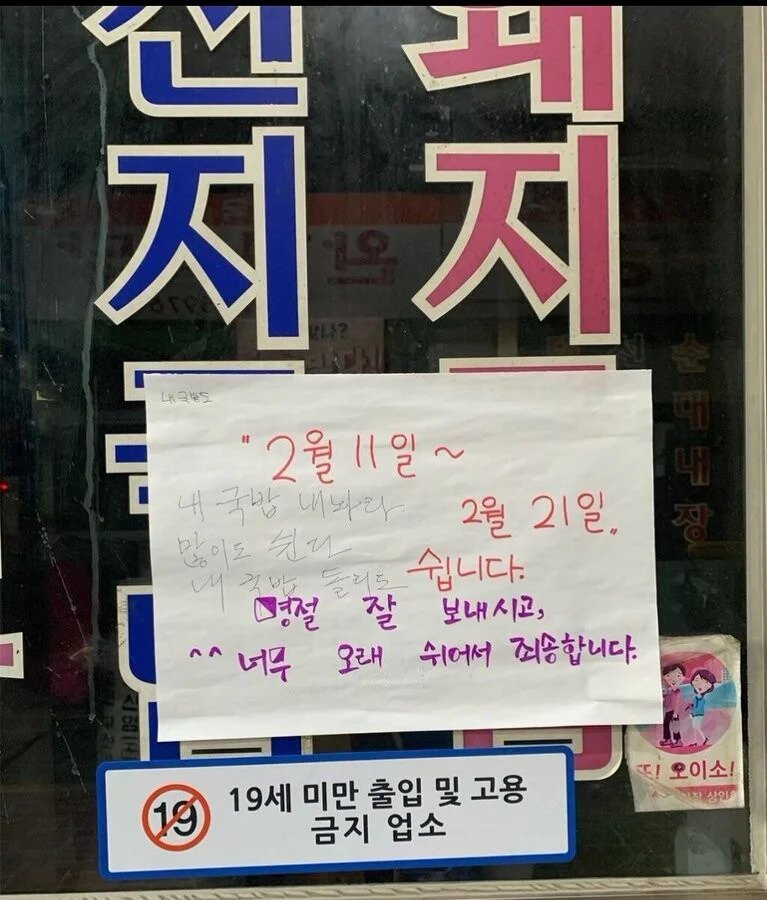 지
돼지
내 국밥도
"2월 11일 ~
2월 21일"
쉽니다.
내 국밥 내놔라
많이도 쉰다
내 국밥 돌리도
명절 잘 보내시고,
^^ 너무 오래 쉬어서 죄송합니다.
순대내장
또! 오이소!
19 19세 미만 출입 및 고용
금지 업소